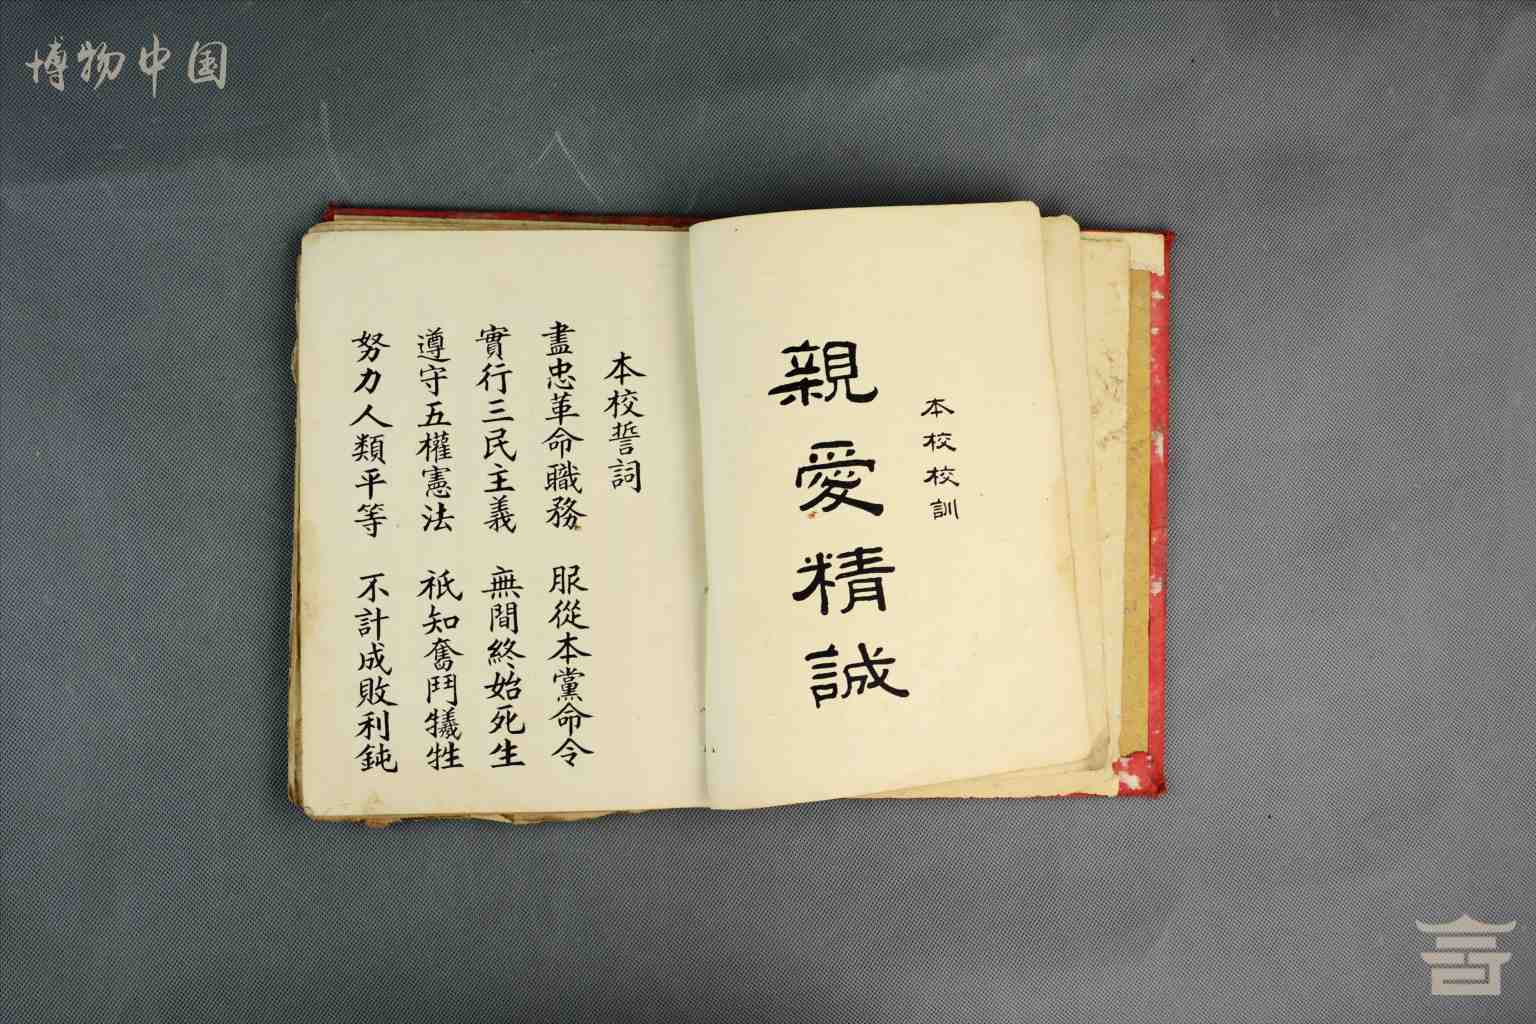 博物中国
本校校訓
親愛精誠
本校誓詞
盡忠革命職務 服從本黨命令
實行三民主義 無間終始死生
遵守五權憲法 祇知奮鬥犧牲
努力人類平等 不計成敗利鈍